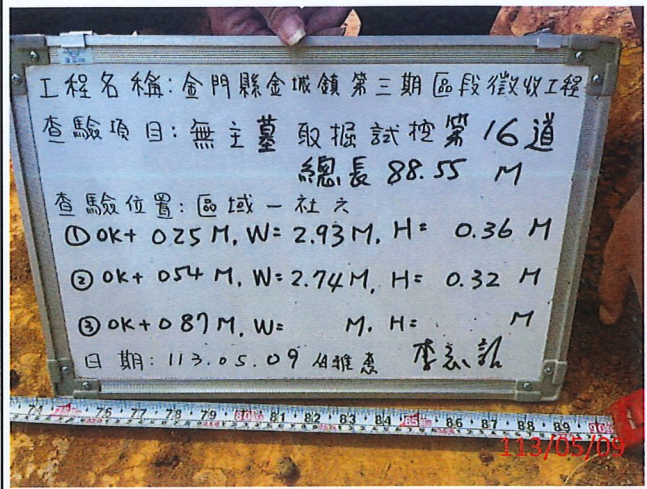 工程名稱:金門縣金城鎮第三期區段徵收工程
查驗項目:無主墓 取掘試挖第16道
總長 88.55 M
查驗位置:區域一社六
①0K+025M, W=2.93M, H= 0.36 M
②0K+054M, W=2.74M, H= 0.32 M
③0K+087M, W= M, H= M
日期:113.05.09 雅惠 李志
74 76 77 78 79 80 81 82 83 84 85 86 87 88 89 90
113/05/09